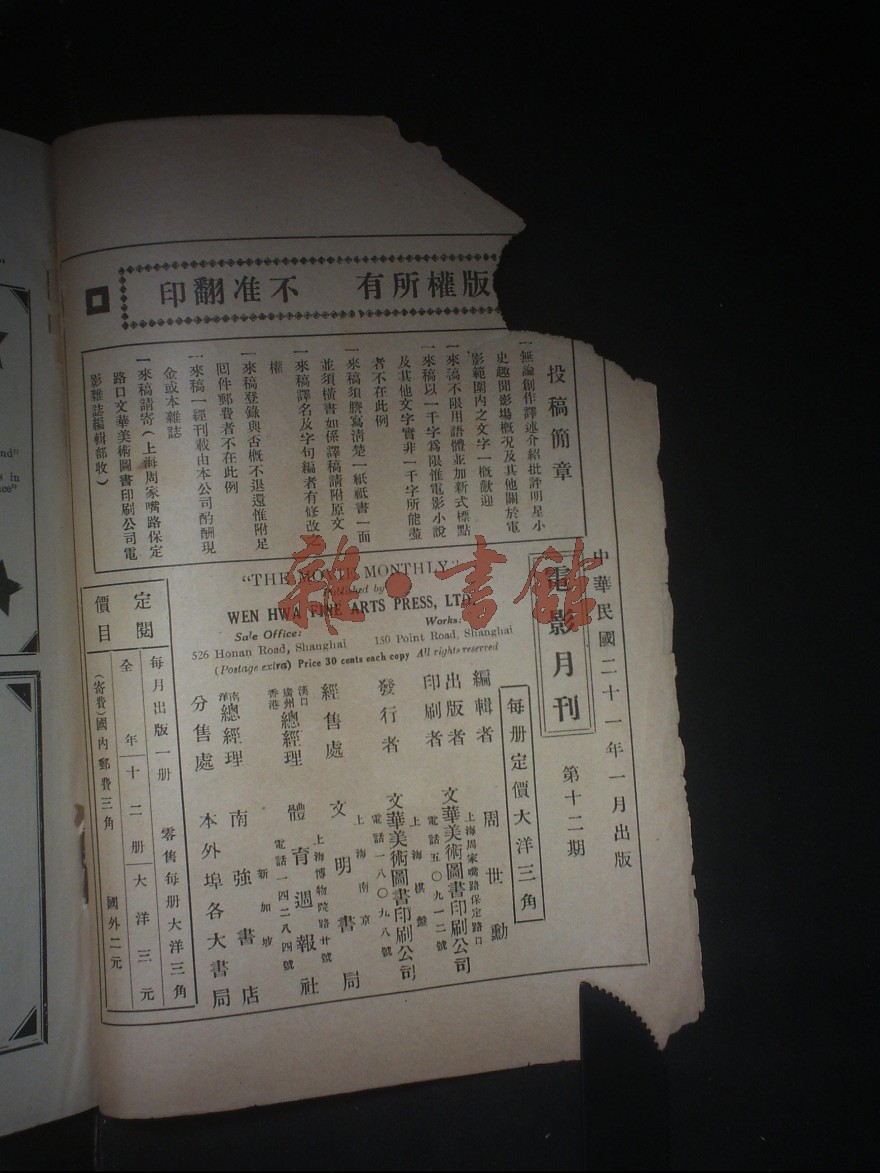 版權所有 不准翻印
投稿簡章
一無論創作譯述介紹批評明星小
史趣聞影場概況及其他關於電
影範圍內之文字一概歡迎
一來稿不限用語體並加新式標點
一來稿以一千字爲限惟電影小說
及其他文字實非一千字所能盡
者不在此例
一來稿須謄寫清楚一紙祇書一面
並須橫書如係譯稿請附原文
一來稿譯名及字句編者有修改之
權
一來稿登錄與否概不退還惟附足
囘件郵費者不在此例
一來稿一經刊載由本公司酌酬現
金或本雜誌
一來稿請寄(上海周家嘴路保定
路口文華美術圖書印刷公司電
影雜誌編輯部收)
中華民國二十一年一月出版
電影月刊
第十二期
每册定價大洋三角
"THE MOVIE MONTHLY"
Published by
WEN HWA FINE ARTS PRESS, LTD.
Sale Office: Works:
526 Honan Road, Shanghai 150 Point Road, Shanghai
(Postage extra) Price 30 cents each copy All rights reserved
編輯者 周世勳
出版者 印刷者 文華美術圖書印刷公司
上海周家嘴路保定路口
電話五〇九一二號
發行者 文華美術圖書印刷公司
上海棋盤
電話一八〇九八號
經售處 文明書局
上海南京
漢口 廣州 香港 總經理 體育週報社
上海博物院路廿號
電話一四二八四號
南洋總經理 南強書店
新加坡
分售處 本外埠各大書局
定閱價目
每月出版一册 零售每册大洋三角
全年十二册 大洋三元
(寄費)國內郵費三角 國外二元
雜·書館